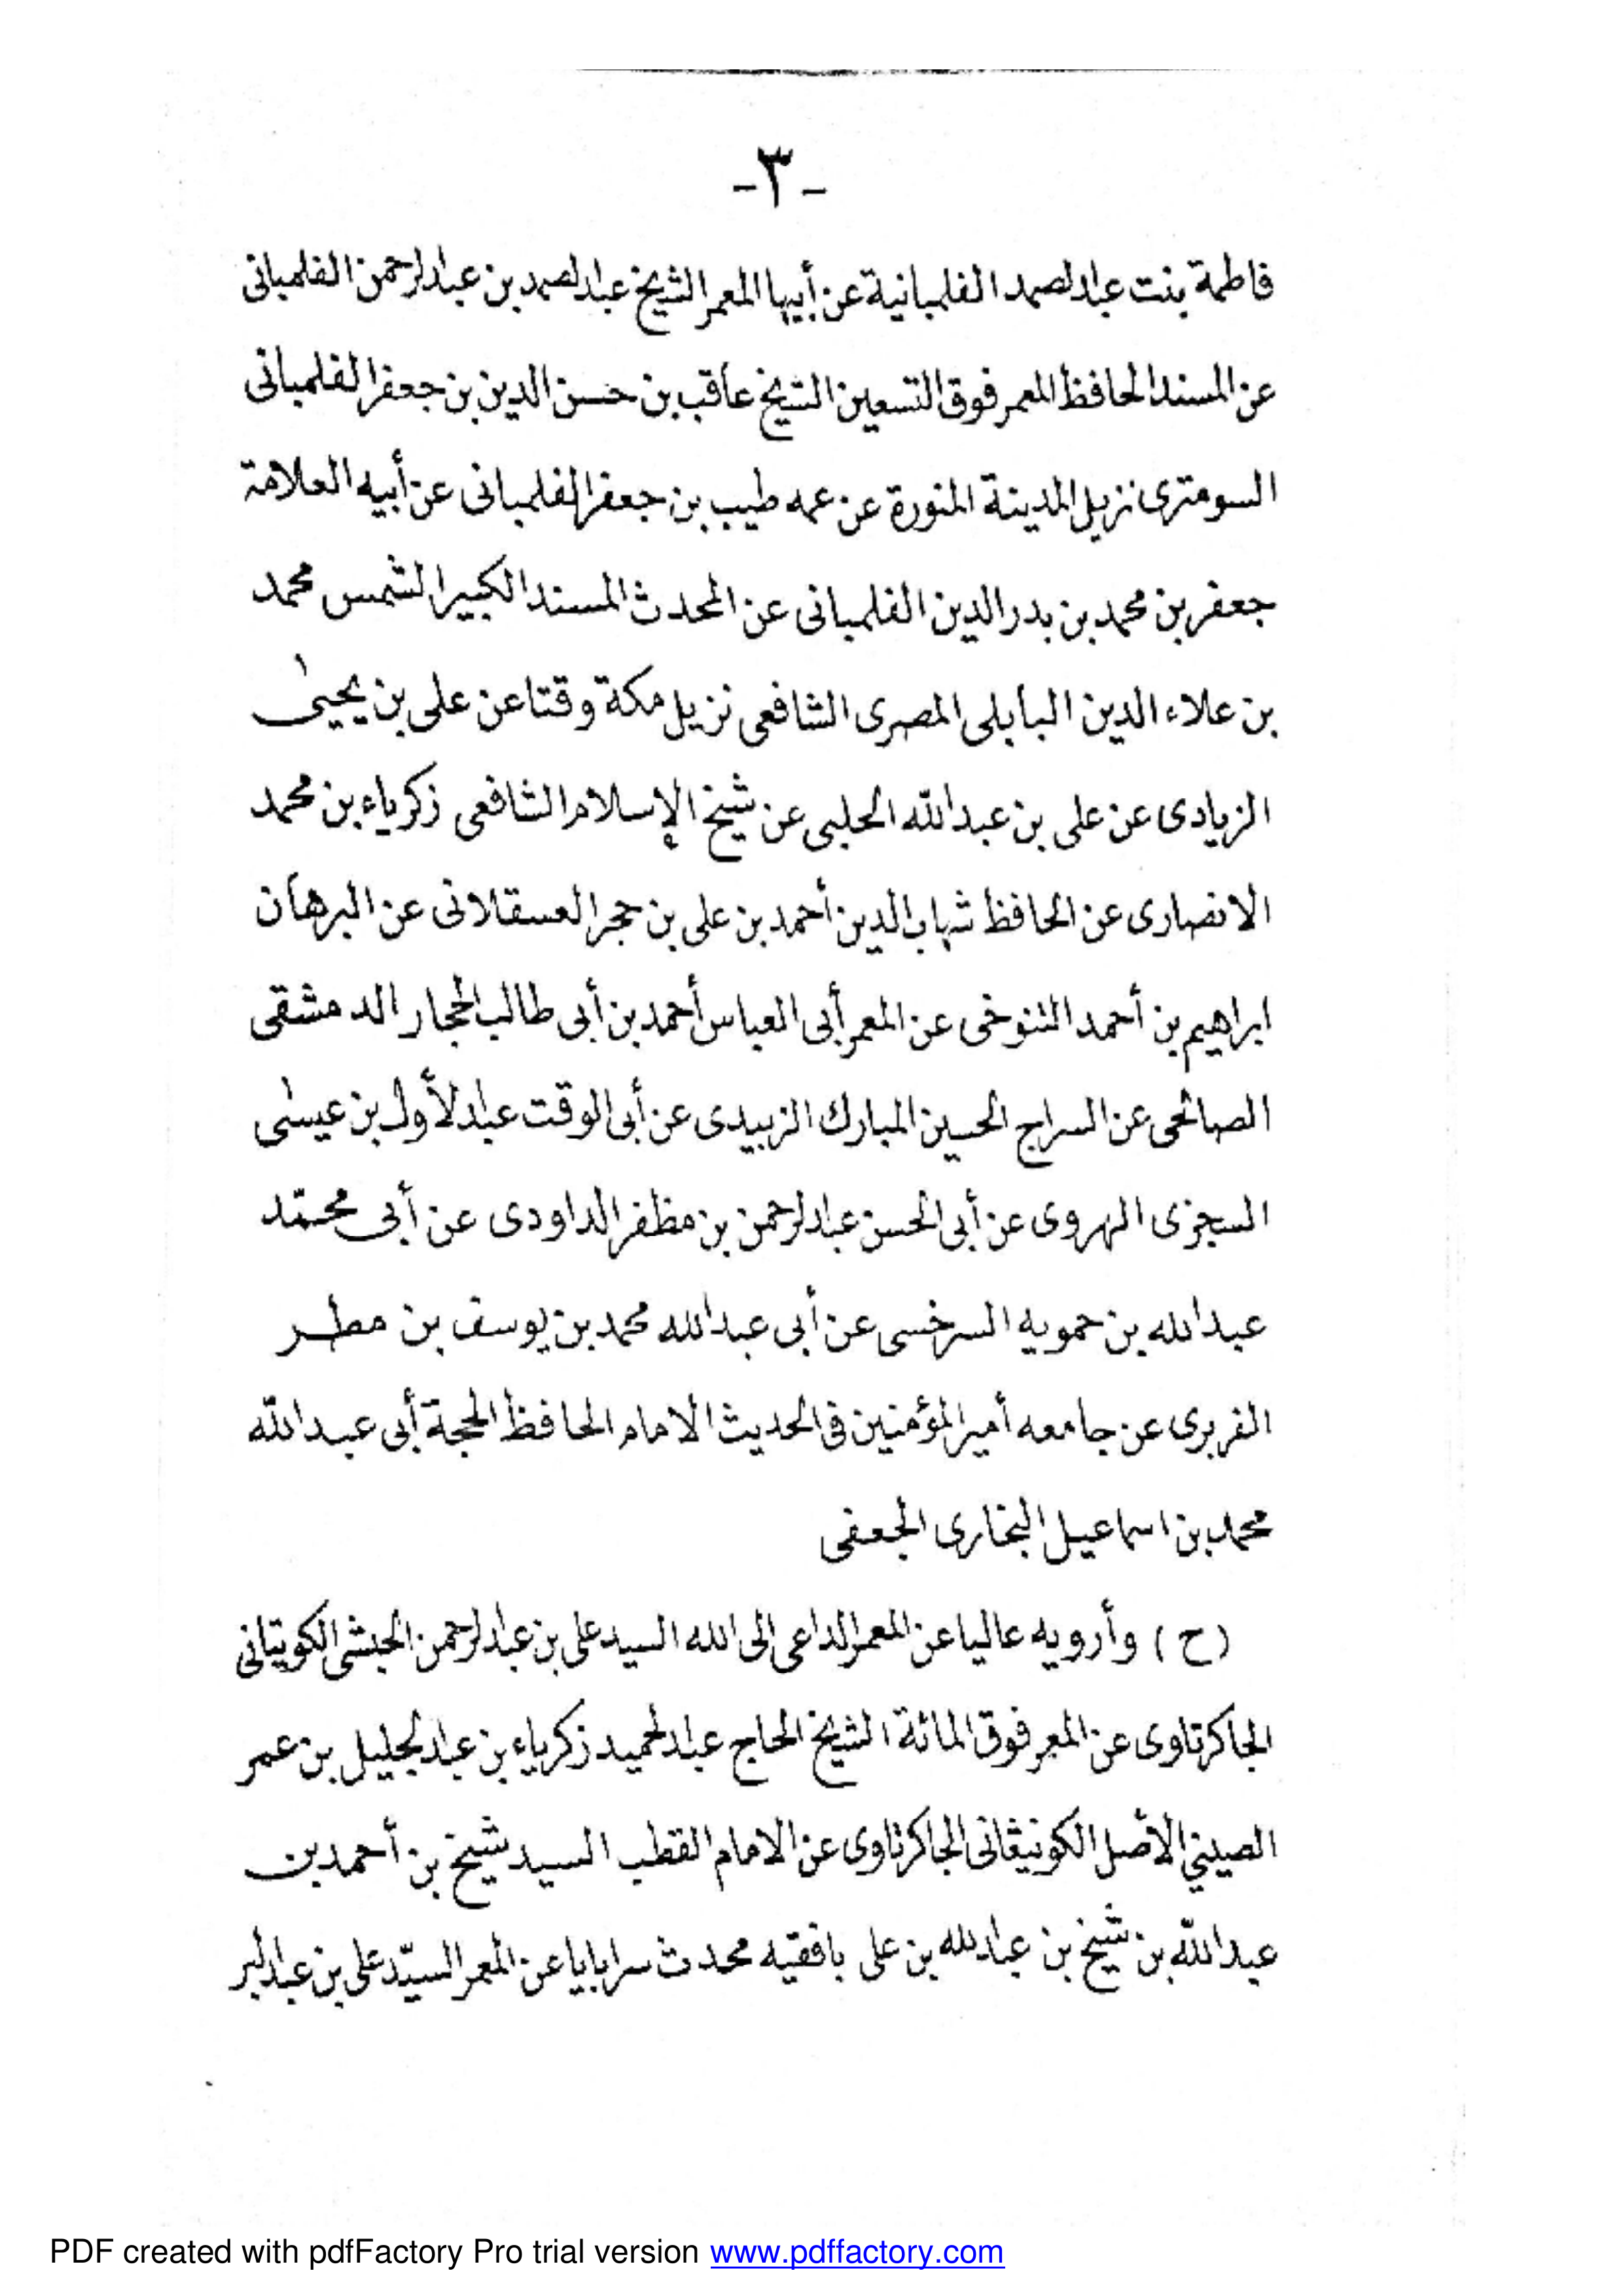 -٣-
فاطمة بنت عبدالصمد الفلمبانية عن أبيها المعمر الشيخ عبدالصمد بن عبدالرحمن الفلمبانى
عن المسند الحافظ المعمر فوق التسعين الشيخ عاقب بن حسن الدين بن جعفر الفلمبانى
السومترى نزيل المدينة المنورة عن عمه طيب بن جعفر الفلمبانى عن أبيه العلامة
جعفر بن محمد بن بدر الدين الفلمبانى عن المحدث المسند الكبير الشمس محمد
بن علاء الدين البابلى المصرى الشافعى نزيل مكة وقتا عن على بن يحيى
الزيادى عن على بن عبدالله الحلبى عن شيخ الإسلام الشافعى زكرياء بن محمد
الانصارى عن الحافظ شهاب الدين أحمد بن على بن حجر العسقلانى عن البرهان
ابراهيم بن أحمد التنوخى عن المعمر أبى العباس أحمد بن أبى طالب الحجار الدمشقى
الصالحى عن السراج الحسين المبارك الزبيدى عن أبى الوقت عبدالأول بن عيسى
السجزى الهروى عن أبى الحسن عبدالرحمن بن مظفر الداودى عن أبى محمّد
عبدالله بن حمويه السرخسى عن أبى عبدالله محمد بن يوسف بن مطر
الفربرى عن جامعه أمير المؤمنين فى الحديث الامام الحافظ الحجة أبى عبدالله
محمد بن اسماعيل البخارى الجعفى
(ح) وأرويه عاليا عن المعمر الداعى الى الله السيد على بن عبدالرحمن الحبشى الكويتانى
الجاكرتاوى عن المعمر فوق المائة الشيخ الحاج عبدالحميد زكرياء بن عبدالجليل بن عمر
الصيني الأصل الكونيڠانى الجاكرتاوى عن الامام القطب السيد شيخ بن أحمد بن
عبدالله بن شيخ بن عبدالله بن على بافقيه محدث سرابايا عن المعمر السيّد على بن عبدالبر
PDF created with pdfFactory Pro trial version www.pdffactory.com